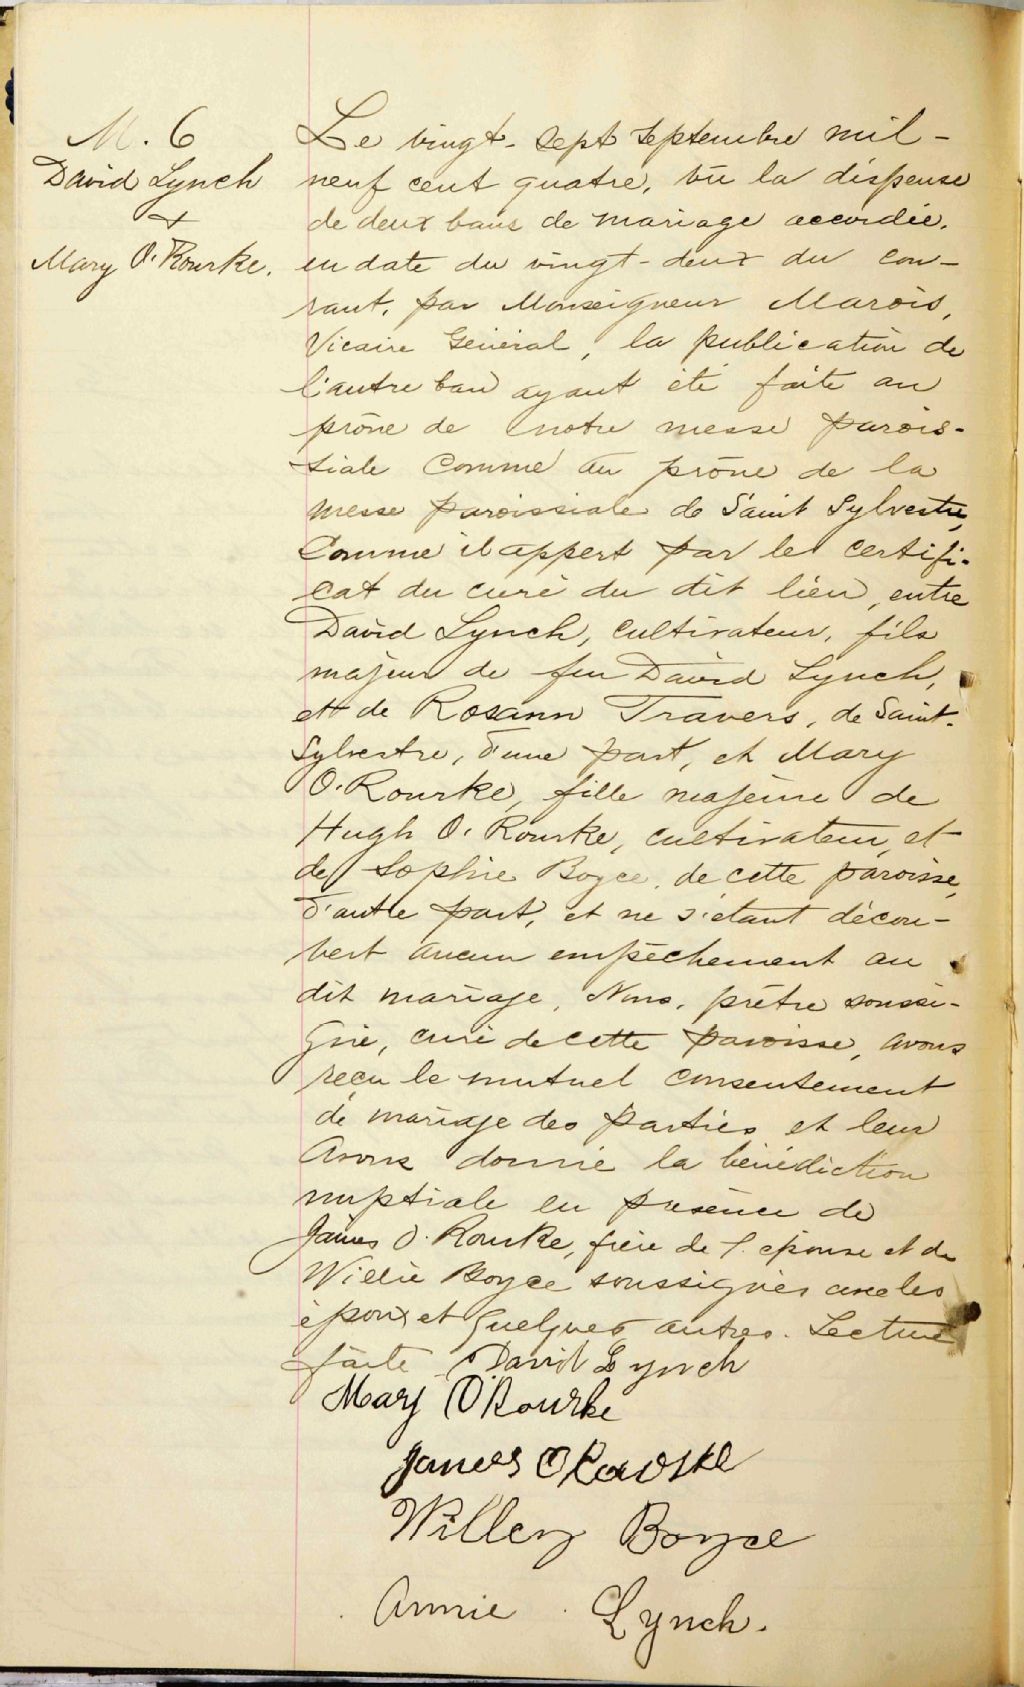 M. 6
David Lynch
&
Mary O'Rourke.
Le vingt-sept septembre mil-
neuf cent quatre, vu la dispense
de deux bans de mariage accordée,
en date du vingt-deux du cou-
rant, par Monseigneur Marois,
Vicaire Général, la publication de
l'autre ban ayant été faite au
prône de notre messe parois-
siale comme au prône de la
messe paroissiale de Saint Sylvestre,
Comme il appert par le certifi-
cat du curé du dit lieu, entre
David Lynch, cultivateur, fils
majeur de feu David Lynch,
et de Rosann Travers, de Saint-
Sylvestre, d'une part, et Mary
O'Rourke, fille majeure de
Hugh O'Rourke, cultivateur, et
de Sophie Boyce, de cette paroisse,
d'autre part, et ne s'étant décou-
vert aucun empêchement au
dit mariage, Nous, prêtre soussi-
gné, curé de cette paroisse, avons
reçu le mutuel consentement
de mariage des parties et leur
avons donné la bénédiction
nuptiale en présence de
James O'Rourke, frère de l'épouse et de
Willie Boyce soussignés avec les
époux et quelques autres. Lecture
faite David Lynch
Mary O Rourke
James O Rourke
Willey Boyce
Annie Lynch.